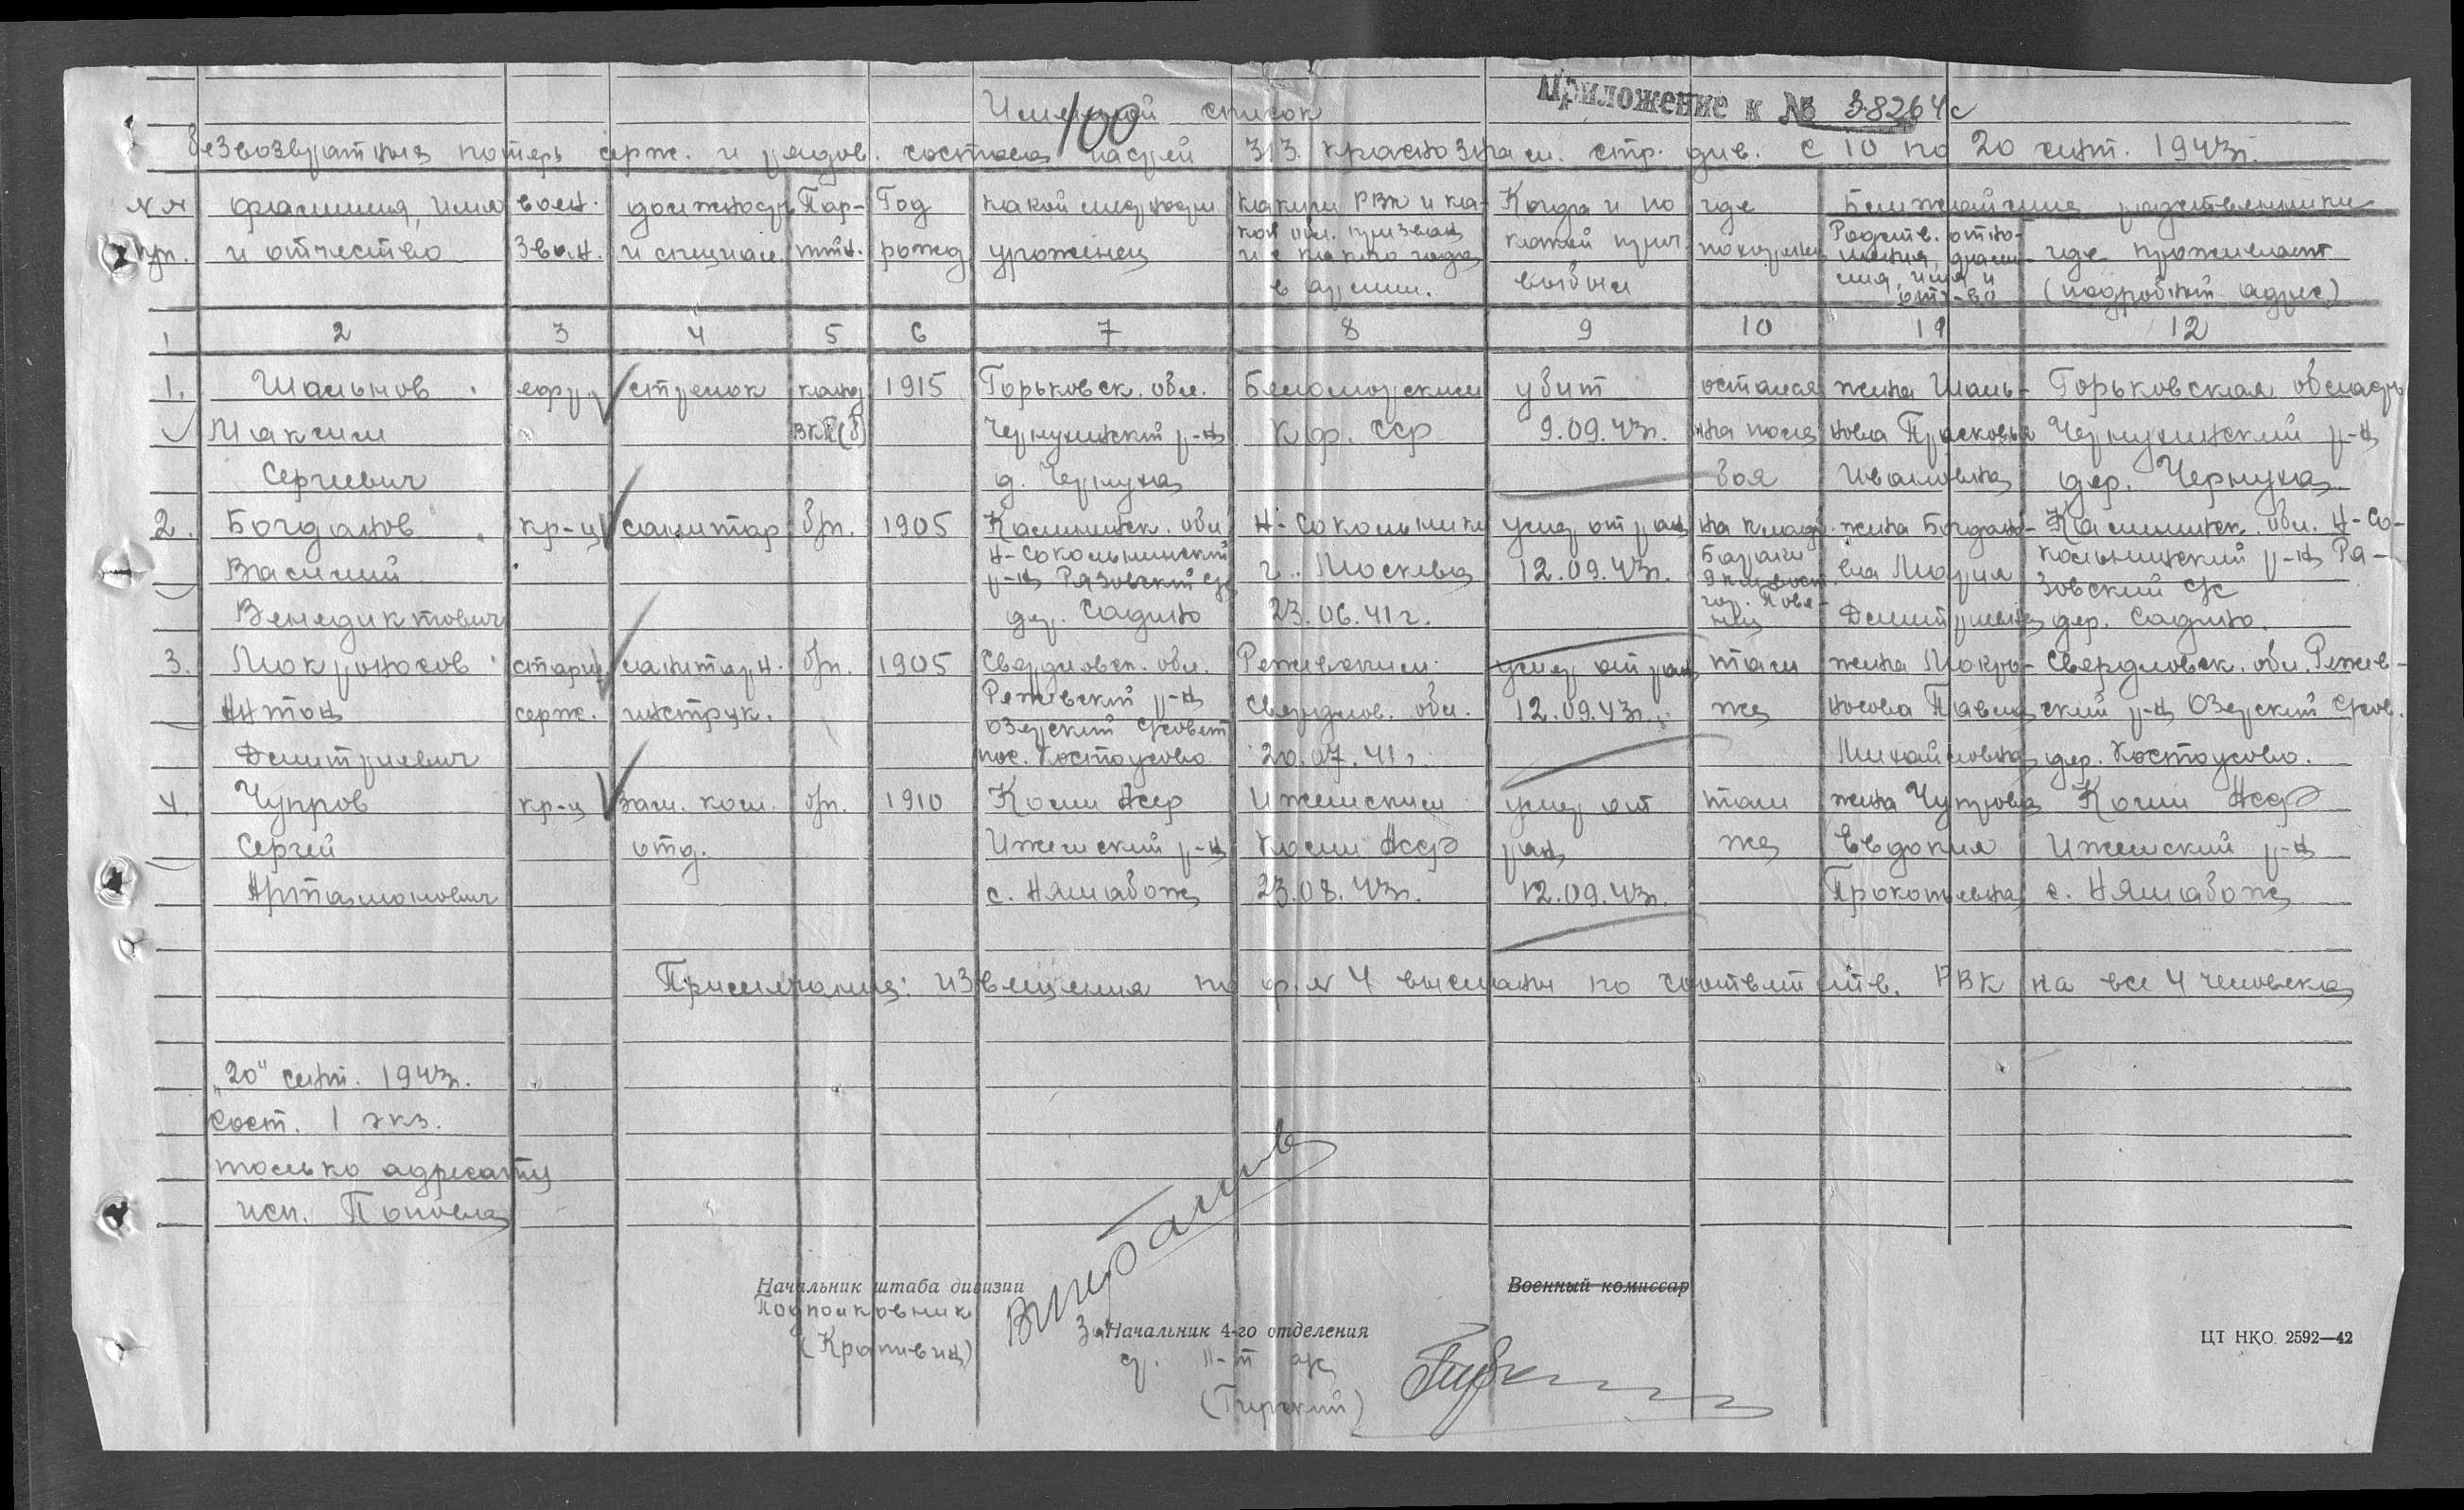 Приложение к № 38264с
Именной список
100
безвозвратных потерь серж. и рядов. состава частей 313 краснознам. стр. див. с 10 по 20 сент. 1943г.
№№ фамилия, имя воен. должность Пар- Год какой местности каким РВК и ка- Когда и по где Ближайшие родственники
пп. и отчество зван. и специал. тийн. рожд уроженец кой обл. призван какой прич. похоронен Родств. отно- где проживают
и с какого года шения, фами-
в армии. выбыл лия, имя и (подробный адрес)
отч-во
1 2 3 4 5 6 7 8 9 10 11 12
1. Шальнов ефр. стрелок канд 1915 Горьковск. обл. Беломорским убит остался жена Шаль- Горьковская область
Максим ВКП(б) Чернухинский р-н К.ф. ССР 9.09.43г. на поле нова Прасковья Чернухинский р-н
Сергеевич д. Чернуха боя Ивановна дер. Чернуха
2. Богданов кр-ц санитар б/п. 1905 Калининск. обл Н-Сокольники умер от ран на кладб. жена Богдано- Калининск. обл. Н-Со-
Василий Н-Сокольнинский г. Москва 12.09.43г. ва Мария кольнинский р-н Ра-
р-н Разовский с/с 9 км вост. зовский с/с
Венедиктович дер. Садино 23.06.41г. гор. Пове- Дмитриевна дер. Садино.
нец
3. Мокроносов старш. санитарн. б/п. 1905 Свердловск. обл. Режевским умер от ран там жена Мокро- Свердловск. обл. Режев-
Антон серж. инструк. Режевский р-н Свердлов. обл. 12.09.43г. же носова Павла ский р-н Озерский с/сов.
Озерский с/совет
Дмитриевич пос. Костоусово 20.07.41г. Михайловна дер. Костоусово.
4. Чупров кр-ц зам. ком. б/п. 1910 Коми АССР Ижемским умер от там жена Чупрова Коми АССР
Сергей отд. Ижемский р-н Коми АССР ран же Евдокия Ижемский р-н
Артамонович с. Няшабож 23.08.43г. 12.09.43г. Прокопьевна с. Няшабож
Примечание: извещения по ф. № 4 высланы по соответств. РВК на все 4 человека
"20" сент. 1943г.
Сост. 1 экз.
только адресату
исп. Попова
Начальник штаба дивизии
Военный комиссар
Подполковник
(Крапивин)
За Начальник 4-го отделения
ЦТ НКО. 2592—42